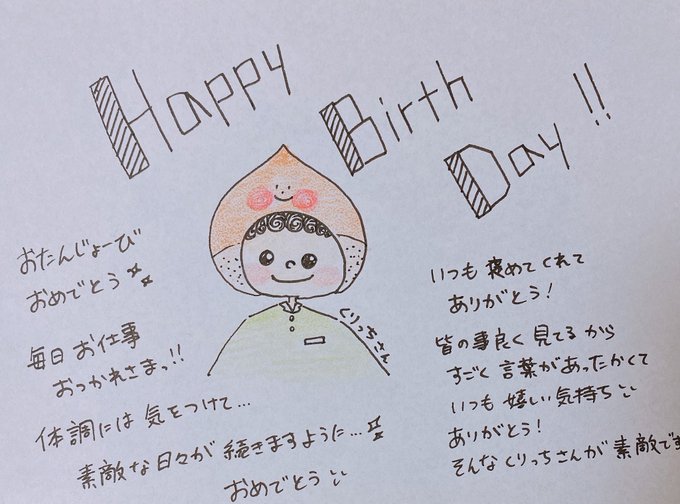 Happy
Birth
Day!!
おたんじょーび
おめでとう
毎日お仕事
おつかれさまっ!!
体調には気をつけて...
素敵な日々が続きますように...
おめでとう
くりっちさん
いつも褒めてくれて
ありがとう!
皆の事良く見てるから
すごく言葉があったかくて
いつも嬉しい気持ち
ありがとう!
そんなくりっちさんが素敵で